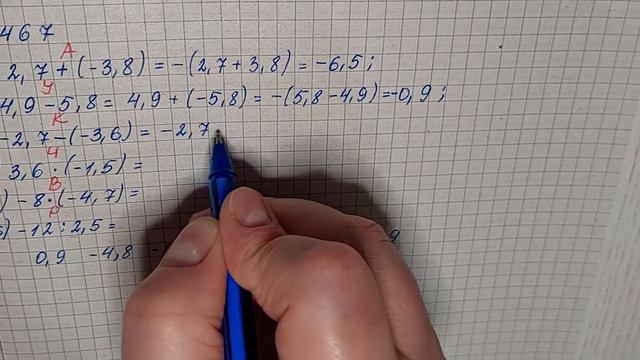 467
А
2,7 + (-3,8) = -(2,7 + 3,8) = -6,5;
У
4,9 - 5,8 = 4,9 + (-5,8) = -(5,8 - 4,9) = -0,9;
К
-2,7 - (-3,6) = -2,7
Ч
3,6 · (-1,5) =
В
) -8 · (-4,7) =
Р
) -12 : 2,5 =
0,9 -4,8